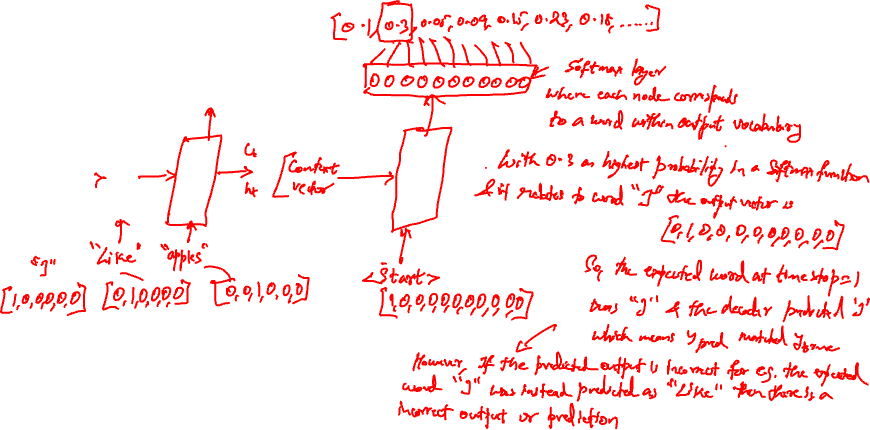 [0.1, 0.3, 0.05, 0.09, 0.15, 0.23, 0.18, ......]
0 0 0 0 0 0 0 0 0 0
Softmax layer
where each node corresponds
to a word within output vocabulary
Ct
ht
[Context
vector
With 0.3 as highest probability in a Softmax function
& it relates to word "I" the output vector is
[0,1,0,0,0,0,0,0,0,0]
"I"
"Like"
"apples"
[1,0,0,0,0,0]
[0,1,0,0,0]
[0,0,1,0,0,0]
<Start>
[1,0,0,0,0,0,0,0,0,0]
So, the expected word at timestep=1
was "I" & the decoder predicted 'I'
which means ypred matched ytrue
However, If the predicted output is Incorrect for eg. the expected
word "I" was instead predicted as "Like" then there is a
incorrect output or prediction